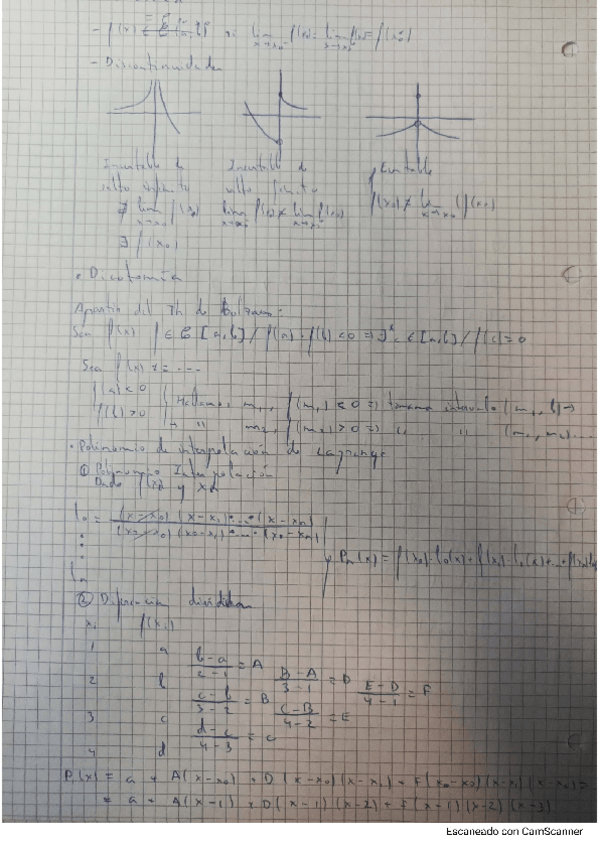 - f(x) ∈ C [a, b] si lim x→x₀⁻ f(x) = lim x→x₀⁺ f(x) = f(x₀)
- Discontinuidades
Inevitable de Inevitable de Evitable
salto infinito salto finito f(x₀) ≠ lim x→x₀ f(x)
∄ lim x→x₀ f(x) lim x→x₀ f(x) ≠ lim x→x₀ f(x)
∃ f(x₀)
• Dicotomía
Apartir del Th de Bolzano:
Sea f(x) f ∈ C [a, b] / f(a) · f(b) < 0 ⇒ ∃ c ∈ [a, b] / f(c) = 0
Sea f(x) = ...
f(a) < 0
f(b) > 0 Hallamos m₁, f(m₁) < 0 ⇒ tomamos intervalo (m₁, b) →
→ " m₂, f(m₂) > 0 ⇒ " " (m₁, m₂)...
• Polinomio de interpolación de Lagrange
① Polinomio Interpolación
Dado f(x) y
l₀ = (x - x₀) (x - x₁) · ... · (x - xₙ) / (x₀ - x₀) (x₀ - x₁) · ... · (x₀ - xₙ)
⋮
lₙ
y Pₙ(x) = f(x₀) · l₀(x) + f(x₁) · l₁(x) + ... +
② Diferencias divididas
xᵢ f(xᵢ)
1 a
b - a / 2 - 1 = A
2 b B - A / 3 - 1 = D
c - b / 3 - 2 = B E - D / 4 - 1 = F
3 c C - B / 4 - 2 = E
d - c / 4 - 3 = C
4 d
P(x) = a + A(x - x₀) + D(x - x₀)(x - x₁) + F(x - x₀)(x - x₁)(x - x₂) =
= a + A(x - 1) + D(x - 1)(x - 2) + F(x - 1)(x - 2)(x - 3)
Escaneado con CamScanner